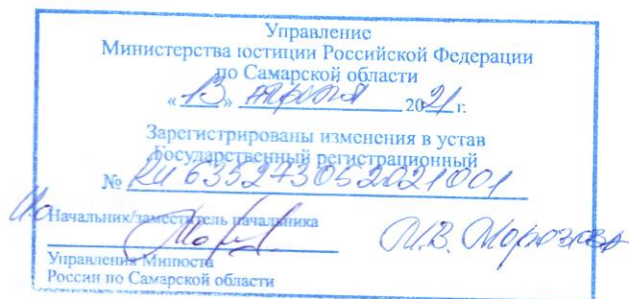 Управление
Министерства юстиции Российской Федерации
по Самарской области
«13» апреля 2021 г.
Зарегистрированы изменения в устав
Государственный регистрационный
№ RU635273052021001
И.о.
Начальник/заместитель начальника
М.В. Морозова
Управления Минюста
России по Самарской области